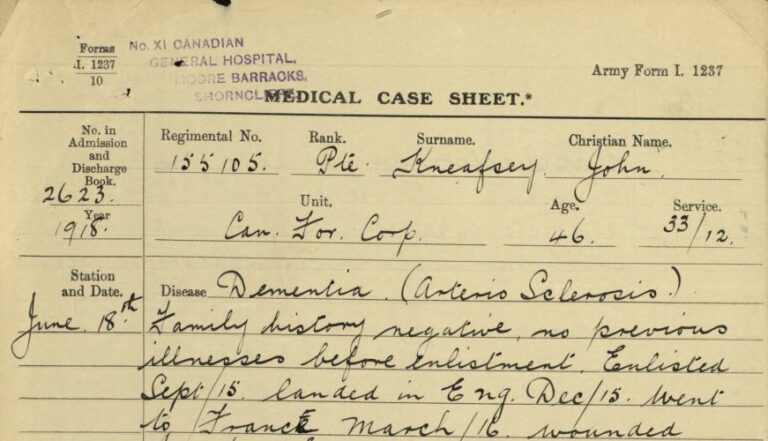 Forms
I. 1237
10
No. XI CANADIAN
GENERAL HOSPITAL,
MOORE BARRACKS,
SHORNCLIFFE.
Army Form I. 1237
MEDICAL CASE SHEET.*
No. in
Admission
and
Discharge
Book.
2623.
Year
1918.
Regimental No. Rank. Surname. Christian Name.
155105. Pte. Kneafsey John.
Unit. Age. Service.
Can. For. Corp. 46. 33/12.
Station
and Date.
June 18th
Disease Dementia. (Arterio Sclerosis.)
Family history negative, no previous
illnesses before enlistment. Enlisted
Sept/15. landed in Eng. Dec/15. Went
to France March/16. wounded